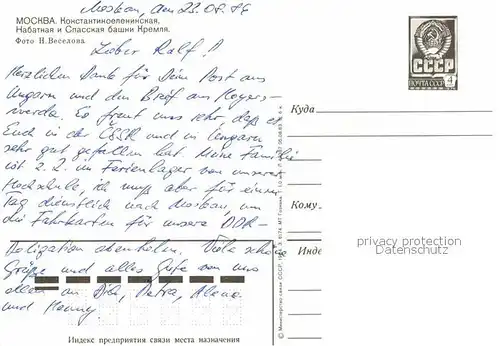 Moskau, am 23.08.86
МОСКВА. Константиноеленинская,
Набатная и Спасская башни Кремля.
Фото Н. Веселова
Lieber Ralf!
Herzlichen Dank für Deine Post aus
Ungarn und den Brief aus Hoyers-
werda. Es freut uns sehr, daß es
Euch in der ČSSR und in Ungarn
sehr gut gefallen hat. Meine Familie
ist z.Z. im Ferienlager von unserer
Hochschule, ich muß aber für einen
Tag dienstlich nach Moskau, um
die Fahrkarten für unsere DDR-
abzuholen. Viele schöne
Grüße und alles Gute von uns
allen
und
Индекс предприятия связи места назначения
СССР
ПОЧТА СССР
4
Куда
Кому
Инде
© Министерство связи СССР
privacy protection
Datenschutz